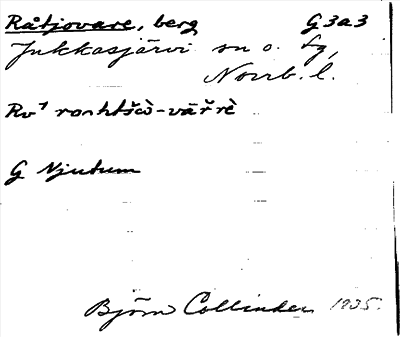 Råtjovare, berg G3a3
Jukkasjärvi sn o. tg,
Norrb. l.
Rv⁷ roshtšò-vāřrè
G Njutum
Björn Collinder 1935.